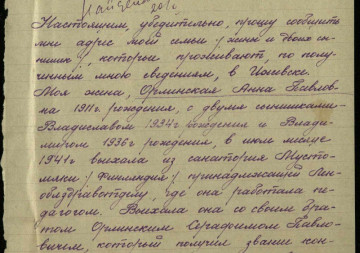 Настоящим, убедительно, прошу сообщить
мне адрес моей семьи / жены и двоих сы-
нишек /, которые проживают, по полу-
ченным мною сведениям, в Ижевске.
Моя жена, Орлинская Анна Павлов-
на 1911 г. рождения, с двумя сынишками-
Владиславом 1934 г. рождения и Влади-
миром 1936 г. рождения, в июле месяце
1941 г. выехала из санатория Мусто-
мяки / Финляндия / принадлежащей Лен-
облздравотделу, где она работала пе-
дагогом. Выехала она со своим бра-
том Орлинским Серафимом Павло-
вичем, который получил звание кон-